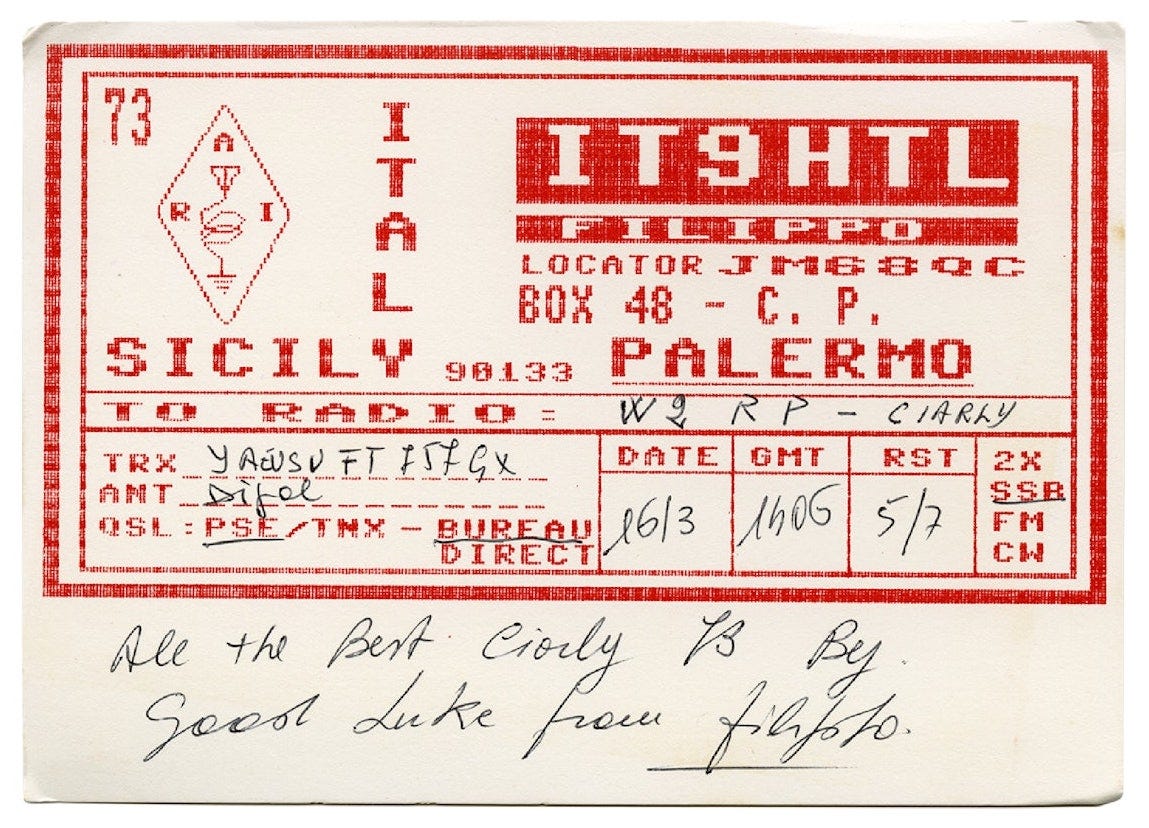 73
A
R I
ITAL
SICILY 90133
IT9HTL
FILIPPO
LOCATOR JM68QC
BOX 48 - C. P.
PALERMO
TO RADIO: W2 RP - CIARLY
TRX YAEUSU FT 757 GX
ANT Dipol
QSL: PSE/TNX - BUREAU
DIRECT
DATE GMT RST
16/3 1406 5/7
2X
SSB
FM
CW
All the Best Ciarly 73 By.
Good Luke from filippo.